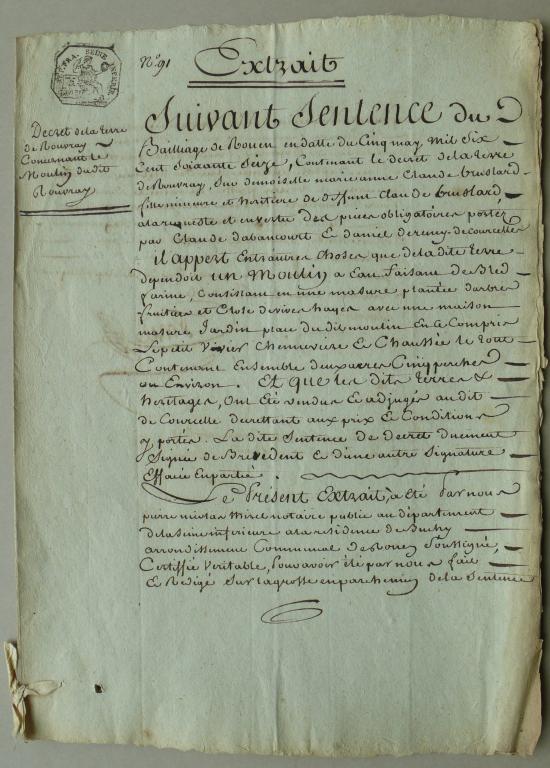 RÉP. FRA. SEINE INFÉRE.
N.º 91
Extrait
Decret de la terre
de Rouvray
Concernant le
Moulin dudit
Rouvray
Suivant Sentence du
Bailliage de Rouen en datte du Cinq may Mil Six
Cent Soixante Seize, Contenant le decret de la terre
de Rouvray, Sur demoiselle marie anne Claude
fille mineure et heritiere de deffunt Claude
a la requeste et en vertu des pieces obligatoires portez
par Claude dabancourt & daniel de remy de courcelles
il appert Entr'autres choses que de la dite terre
dependoit un Moulin a Eau faisant de Bled
farine, Consistant en une masure plantée d'arbres
fruitiers et Close de vives hayes avec une maison
masure Jardin place dudit moulin En ce Compris
Le petit Vivier Chenneviere & Chaussée le tout
Contenant Ensemble deux acres Cinq perches
ou Environ. Et que les dits terres &
heritages, ont Eté vendus & adjugés au dit
de Courcelle decrettant aux prix & Conditions
y portés. La dite Sentence de decret duement
Signée de Brevedent & d'une autre Signature
Effacée En partie.
Le Présent Extrait, a été par nous
pierre nicolas Mirel notaire public au département
de la Seine inferieure a la residence de Buchy
arrondissement Communal de Rouen Soussigné,
Certiffié Veritable, pour avoir été par nous fait
& Redigé Sur la grosse en parchemin de la Sentence